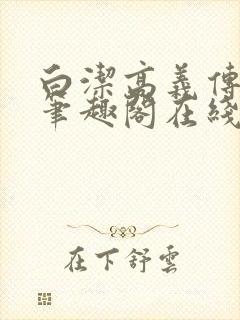 白潔高義傳
筆趣閣在綫
在下舒雲